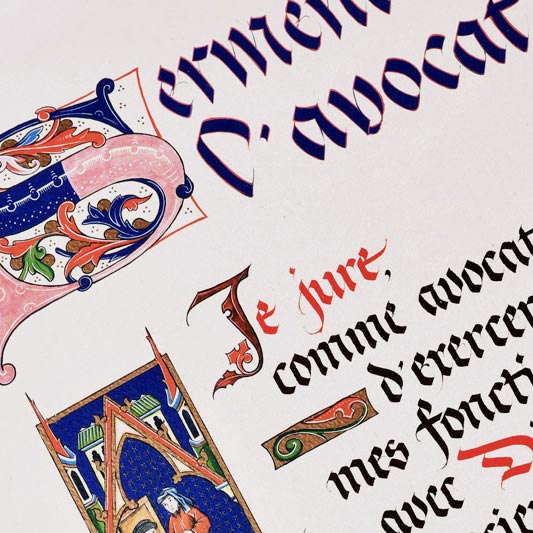 Sermen
d'avocat
Je jure,
comme avocat
d'exercer
mes foncti
avec Di
scien